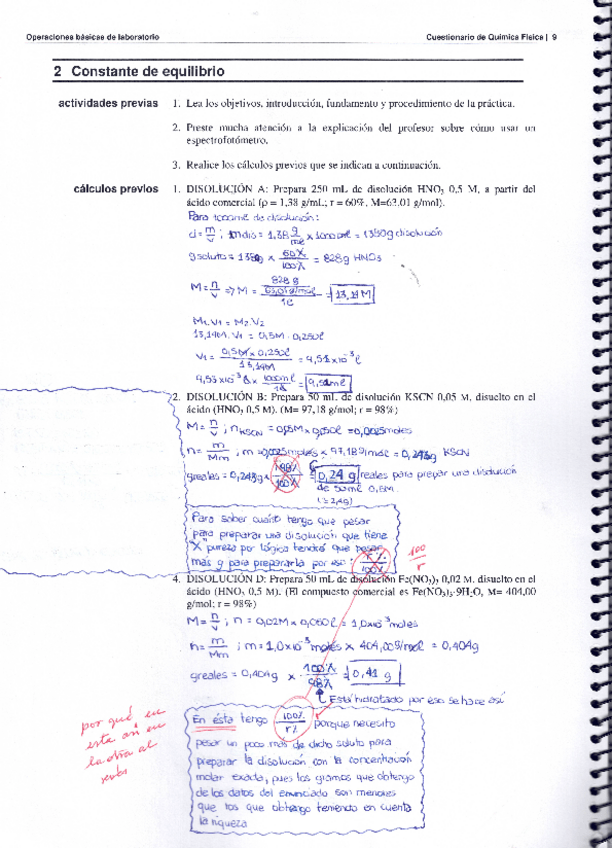 Operaciones básicas de laboratorio
Cuestionario de Química Física | 9
2 Constante de equilibrio
actividades previas
1. Lea los objetivos, introducción, fundamento y procedimiento de la práctica.
2. Preste mucha atención a la explicación del profesor sobre cómo usar un
espectrofotómetro.
3. Realice los cálculos previos que se indican a continuación.
cálculos previos
1. DISOLUCIÓN A: Prepara 250 mL de disolución HNO₃ 0,5 M, a partir del
ácido comercial (ρ = 1,38 g/mL; r = 60%, M=63,01 g/mol).
Para 1000ml de disolución:
d = m/v ; mdis = 1,38 g/ml x 1000ml = 1380g disolución
gsoluto = 1380g x 60%/100% = 828g HNO₃
M = n/v => M = 828g / 63,01g/mol / 1l = 13,14M
M₁.V₁ = M₂.V₂
13,14M. V₁ = 0,5M . 0,250l
V₁ = 0,5M x 0,250l / 13,14M = 9,51x10⁻³ l
9,51x10⁻³ l x 1000ml/1l = 9,51ml
2. DISOLUCIÓN B: Prepara 50 mL de disolución KSCN 0,05 M, disuelto en el
ácido (HNO₃ 0,5 M). (M= 97,18 g/mol; r = 98%)
M = n/v ; n KSCN = 0,05M x 0,050l = 0,0025moles
n = m/Mm ; m = 0,0025moles x 97,18g/mol = 0,243g KSCN
greales = 0,243g x 98%/100% = 0,24 g reales para preparar una disolución
de 50ml 0,5M
Para saber cuánto tengo que pesar
para preparar una disolución que tiene
X pureza por lógica tendré que pesar
más g para prepararla por eso: r%/100%
100/r
4. DISOLUCIÓN D: Prepara 50 mL de disolución Fe(NO₃)₃ 0,02 M, disuelto en el
ácido (HNO₃ 0,5 M). (El compuesto comercial es Fe(NO₃)₃·9H₂O, M= 404,00
g/mol; r = 98%)
M = n/v ; n = 0,02M x 0,050l = 1,0x10⁻³ moles
n = m/Mm ; m = 1,0x10⁻³ moles x 404,00g/mol = 0,404g
greales = 0,404g x 100%/98% = 0,41 g
Está hidratado por eso se hace así
En ésta tengo 100%/r% porque necesito
pesar un poco más de dicho soluto para
preparar la disolución con la concentración
molar exacta, pues los gramos que obtengo
de los datos del enunciado son menores
que los que obtengo teniendo en cuenta
la riqueza
por qué en
esta así en
la otra al
revés